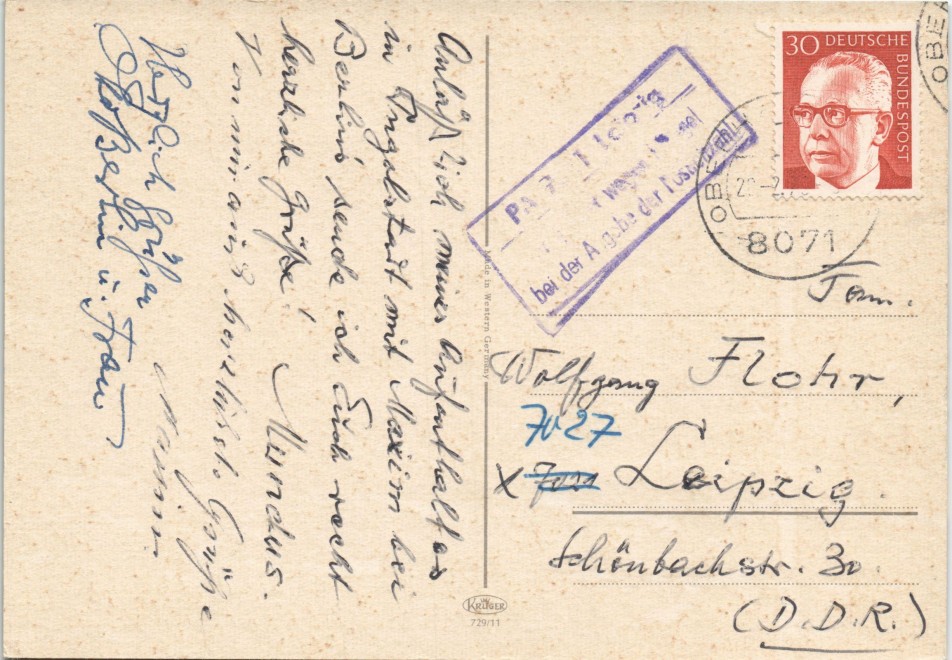 Anläßlich meines Aufenthaltes
in Ingolstadt mit Maxim bei
Berlins sende ich Euch recht
herzliche Grüße! Mundus.
Von mir auch herzlichst. Grüße
Maxim
Herzlich grüßen
Berlin u. Frau
30 DEUTSCHE
BUNDESPOST
OBE
OBE
8071
bei der Angabe der Postleitzahl
Made in Western Germany
Fam.
Wolfgang Flohr,
7027
X Leipzig
Schönbachstr. 30
(D.D.R.)
KRÜGER
729/11